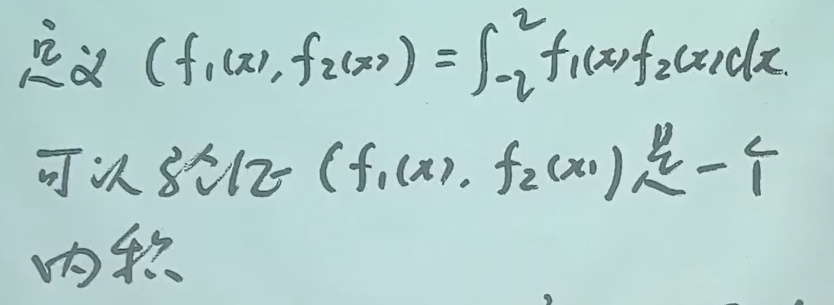 定义 (f₁(x), f₂(x)) = ∫₋₂² f₁(x)f₂(x)dx.
可以验证 (f₁(x), f₂(x)) 是一个
内积